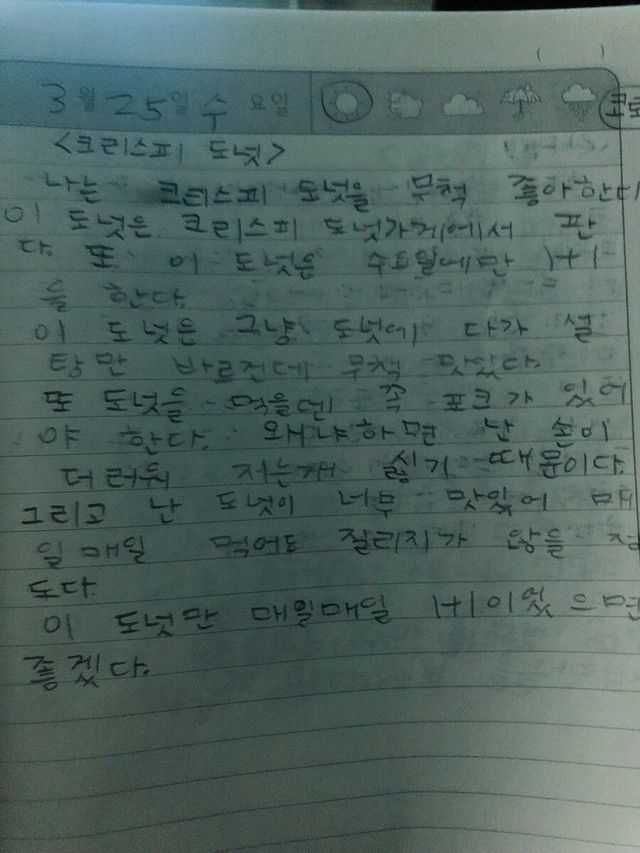 ( )
3월 25일 수요일
<크리스피 도넛>
나는 크리스피 도넛을 무척 좋아한다
이 도넛은 크리스피 도넛가게에서 판
다. 또 이 도넛은 수요일에만 1+1
을 한다.
이 도넛은 그냥 도넛에 다가 설
탕만 바르건데 무척 맛있다.
또 도넛을 먹을땐 꼭 포크가 있어
야 한다. 왜냐하면 난 손이
더러워 저는게 싫기 때문이다.
그리고 난 도넛이 너무 맛있어 매
일매일 먹어도 질리지가 않을 정
도다.
이 도넛만 매일매일 1+1이었으면
좋겠다.